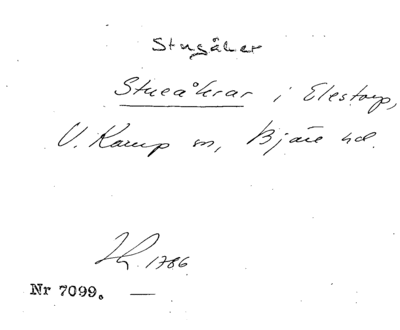 Stugåker
Stueåkrar i Elestorp,
V. Karup sn, Bjäre hd.
1786
Nr 7099. —